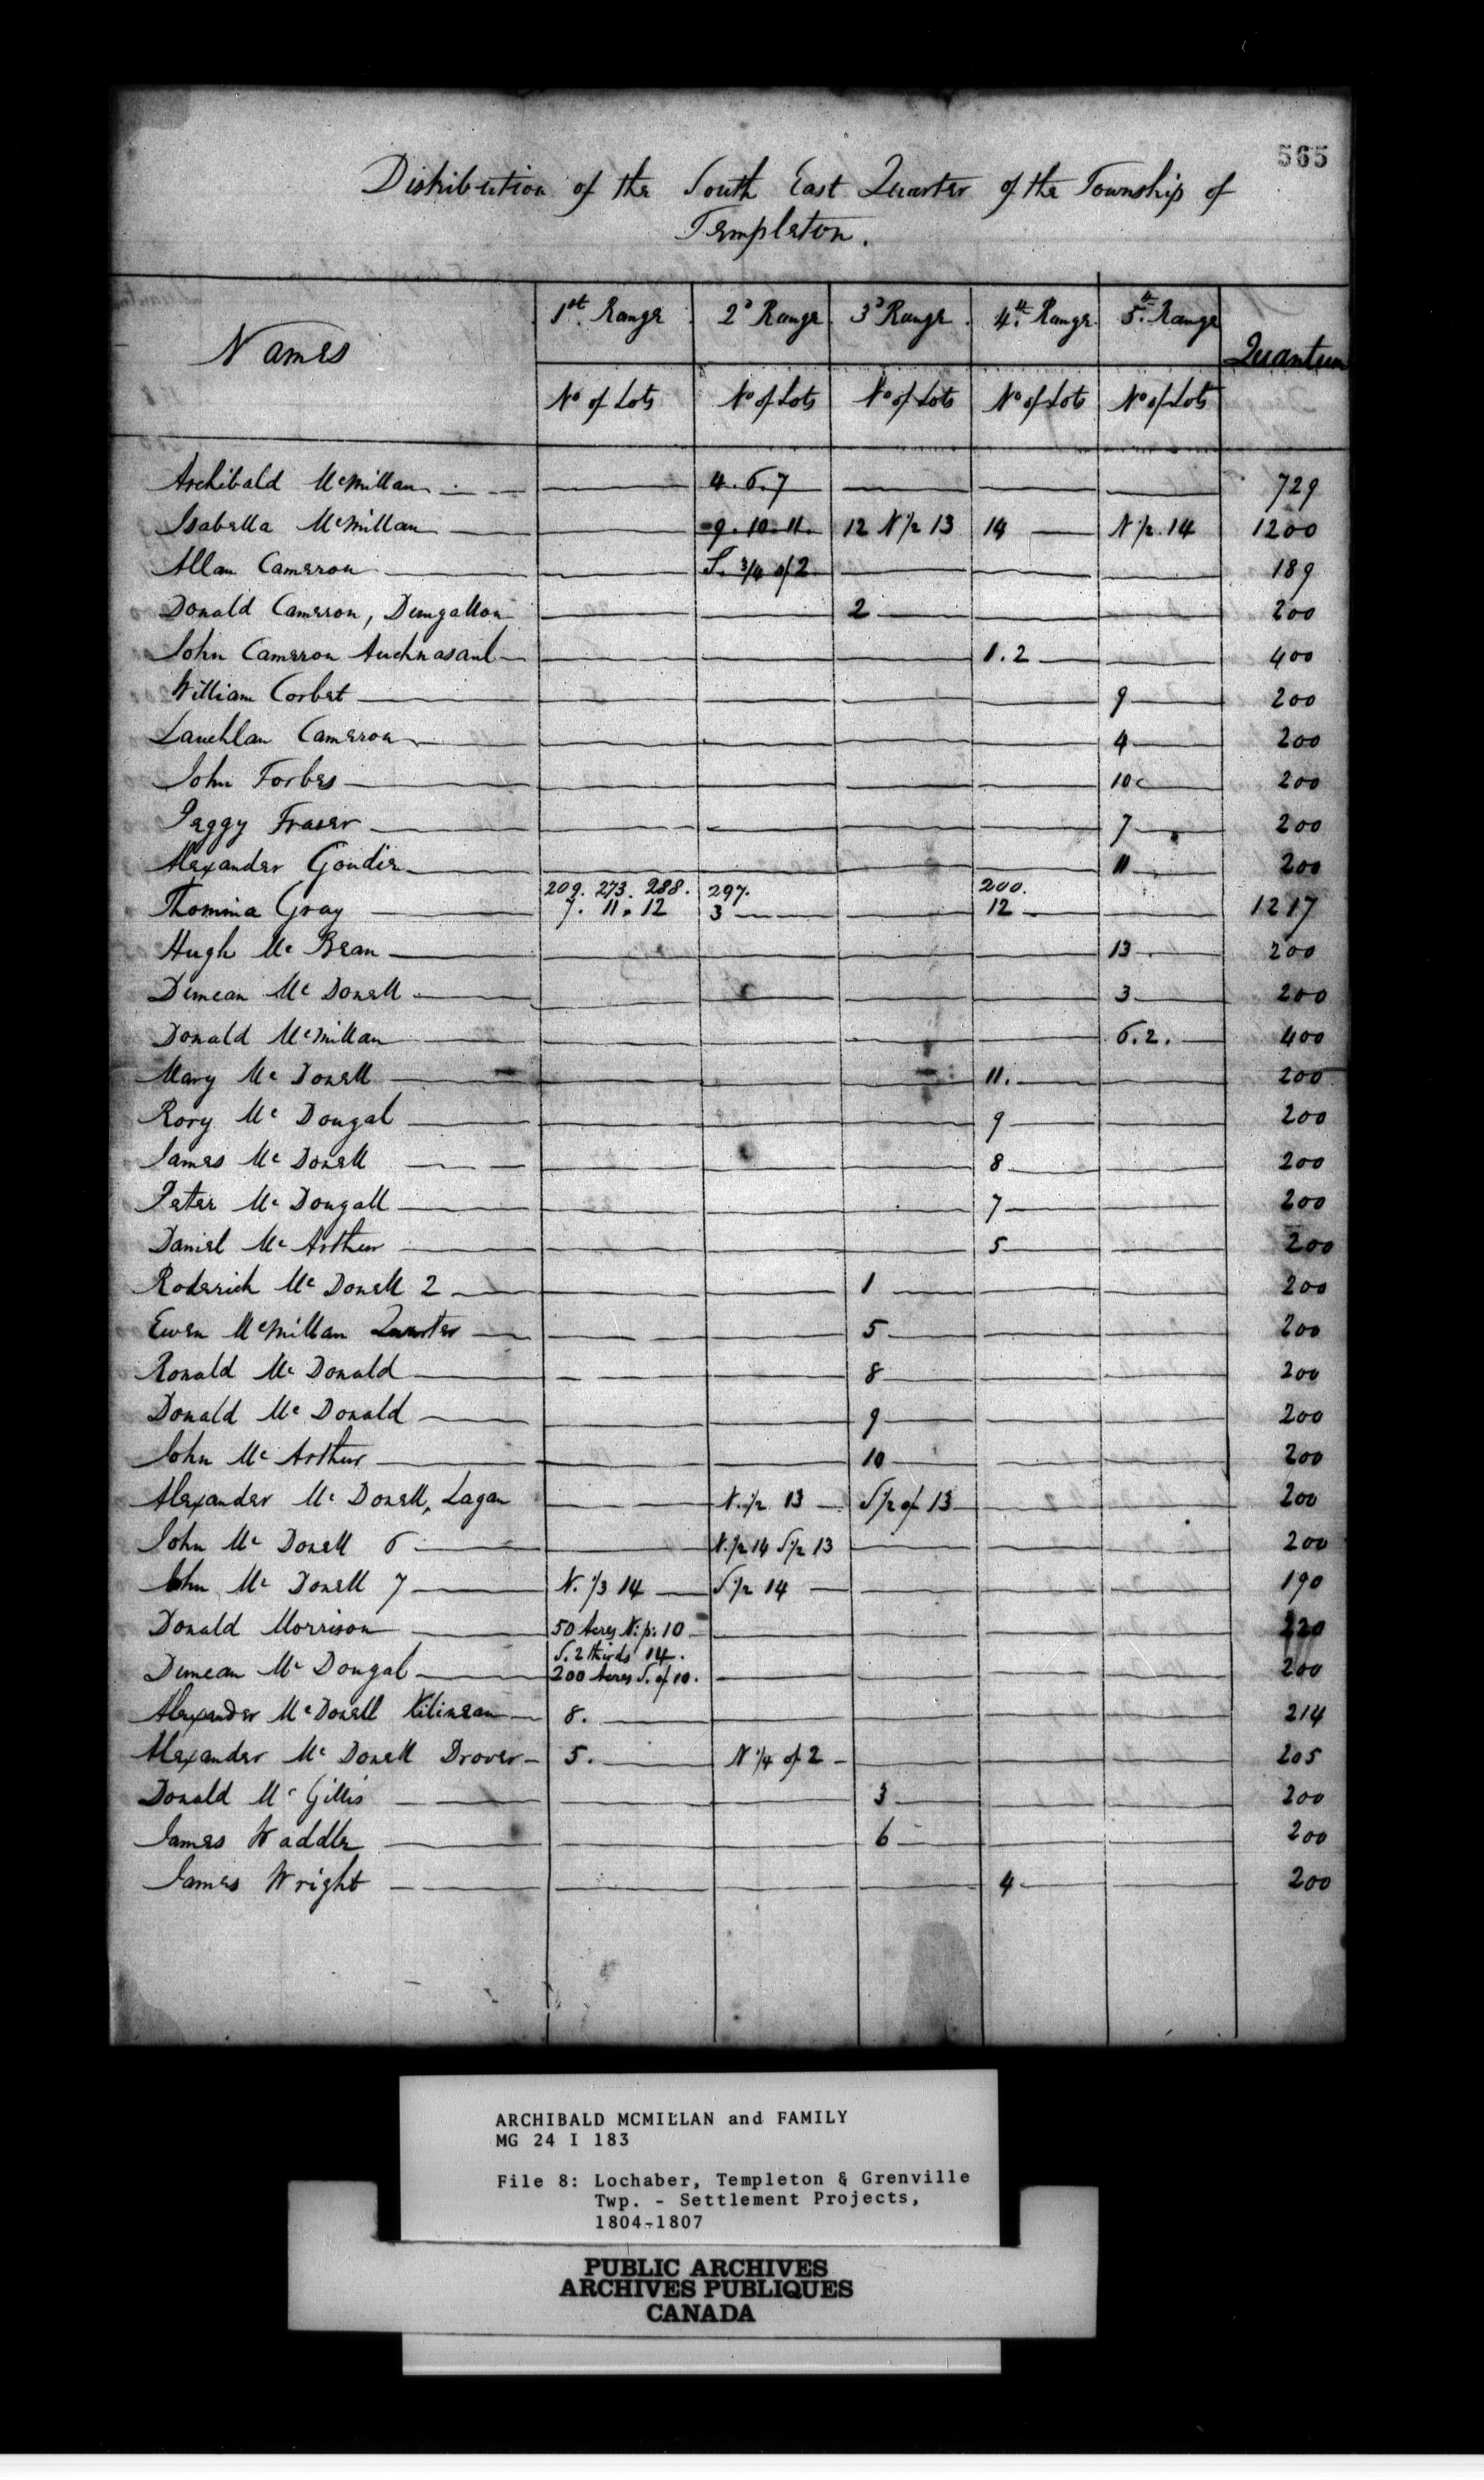 565
Distribution of the South East Quarter of the Township of
Templeton.
Names 1st. Range 2d Range 3d Range 4th. Range 5th. Range Quantum
No of Lots No of Lots No of Lots No of Lots No of Lots
Archibald McMillan 4. 6. 7 729
Isabella McMillan 9. 10. 11. 12 N 1/2 13 14 N 1/2. 14 1200
Allan Cameron S. 3/4 of 2 189
Donald Cameron, 2 200
John Cameron Auchnasaul 1. 2 400
William Corbet 9 200
Lauchlan Cameron 4 200
John Forbes 10 200
Peggy Fraser 7 200
Alexander Goudie 11 200
209. 273. 288. 297. 200.
Thomina Gray 7. 11. 12 3 12 1217
Hugh Mc Bean 13 200
Duncan Mc Donell 3 200
Donald McMillan 6. 2. 400
Mary Mc Donell 11. 200
Rory Mc Dougal 9 200
James Mc Donell 8 200
Peter Mc Dougall 7 200
Daniel Mc Arthur 5 200
Roderick Mc Donell 2 1 200
Ewen McMillan Quarter 5 200
Ronald Mc Donald 8 200
Donald Mc Donald 9 200
John Mc Arthur 10 200
Alexander Mc Donell, Lagan N. 1/2 13 S 1/2 of 13 200
John Mc Donell 6 N. 1/2 14 S 1/2 13 200
John Mc Donell 7 N. 1/3 14 S 1/2 14 190
Donald Morrison 50 Acres N. p. 10 220
S. 2 thirds 14.
Duncan Mc Dougal 200 Acres S. of 10. 200
Alexander McDonell Kilinean 8. 214
Alexander Mc Donell Drover 5. N 1/4 of 2 205
Donald Mc Gillis 3 200
James Waddle 6 200
James Wright 4 200
ARCHIBALD MCMILLAN and FAMILY
MG 24 I 183
File 8: Lochaber, Templeton & Grenville
Twp. - Settlement Projects,
1804-1807
PUBLIC ARCHIVES
ARCHIVES PUBLIQUES
CANADA